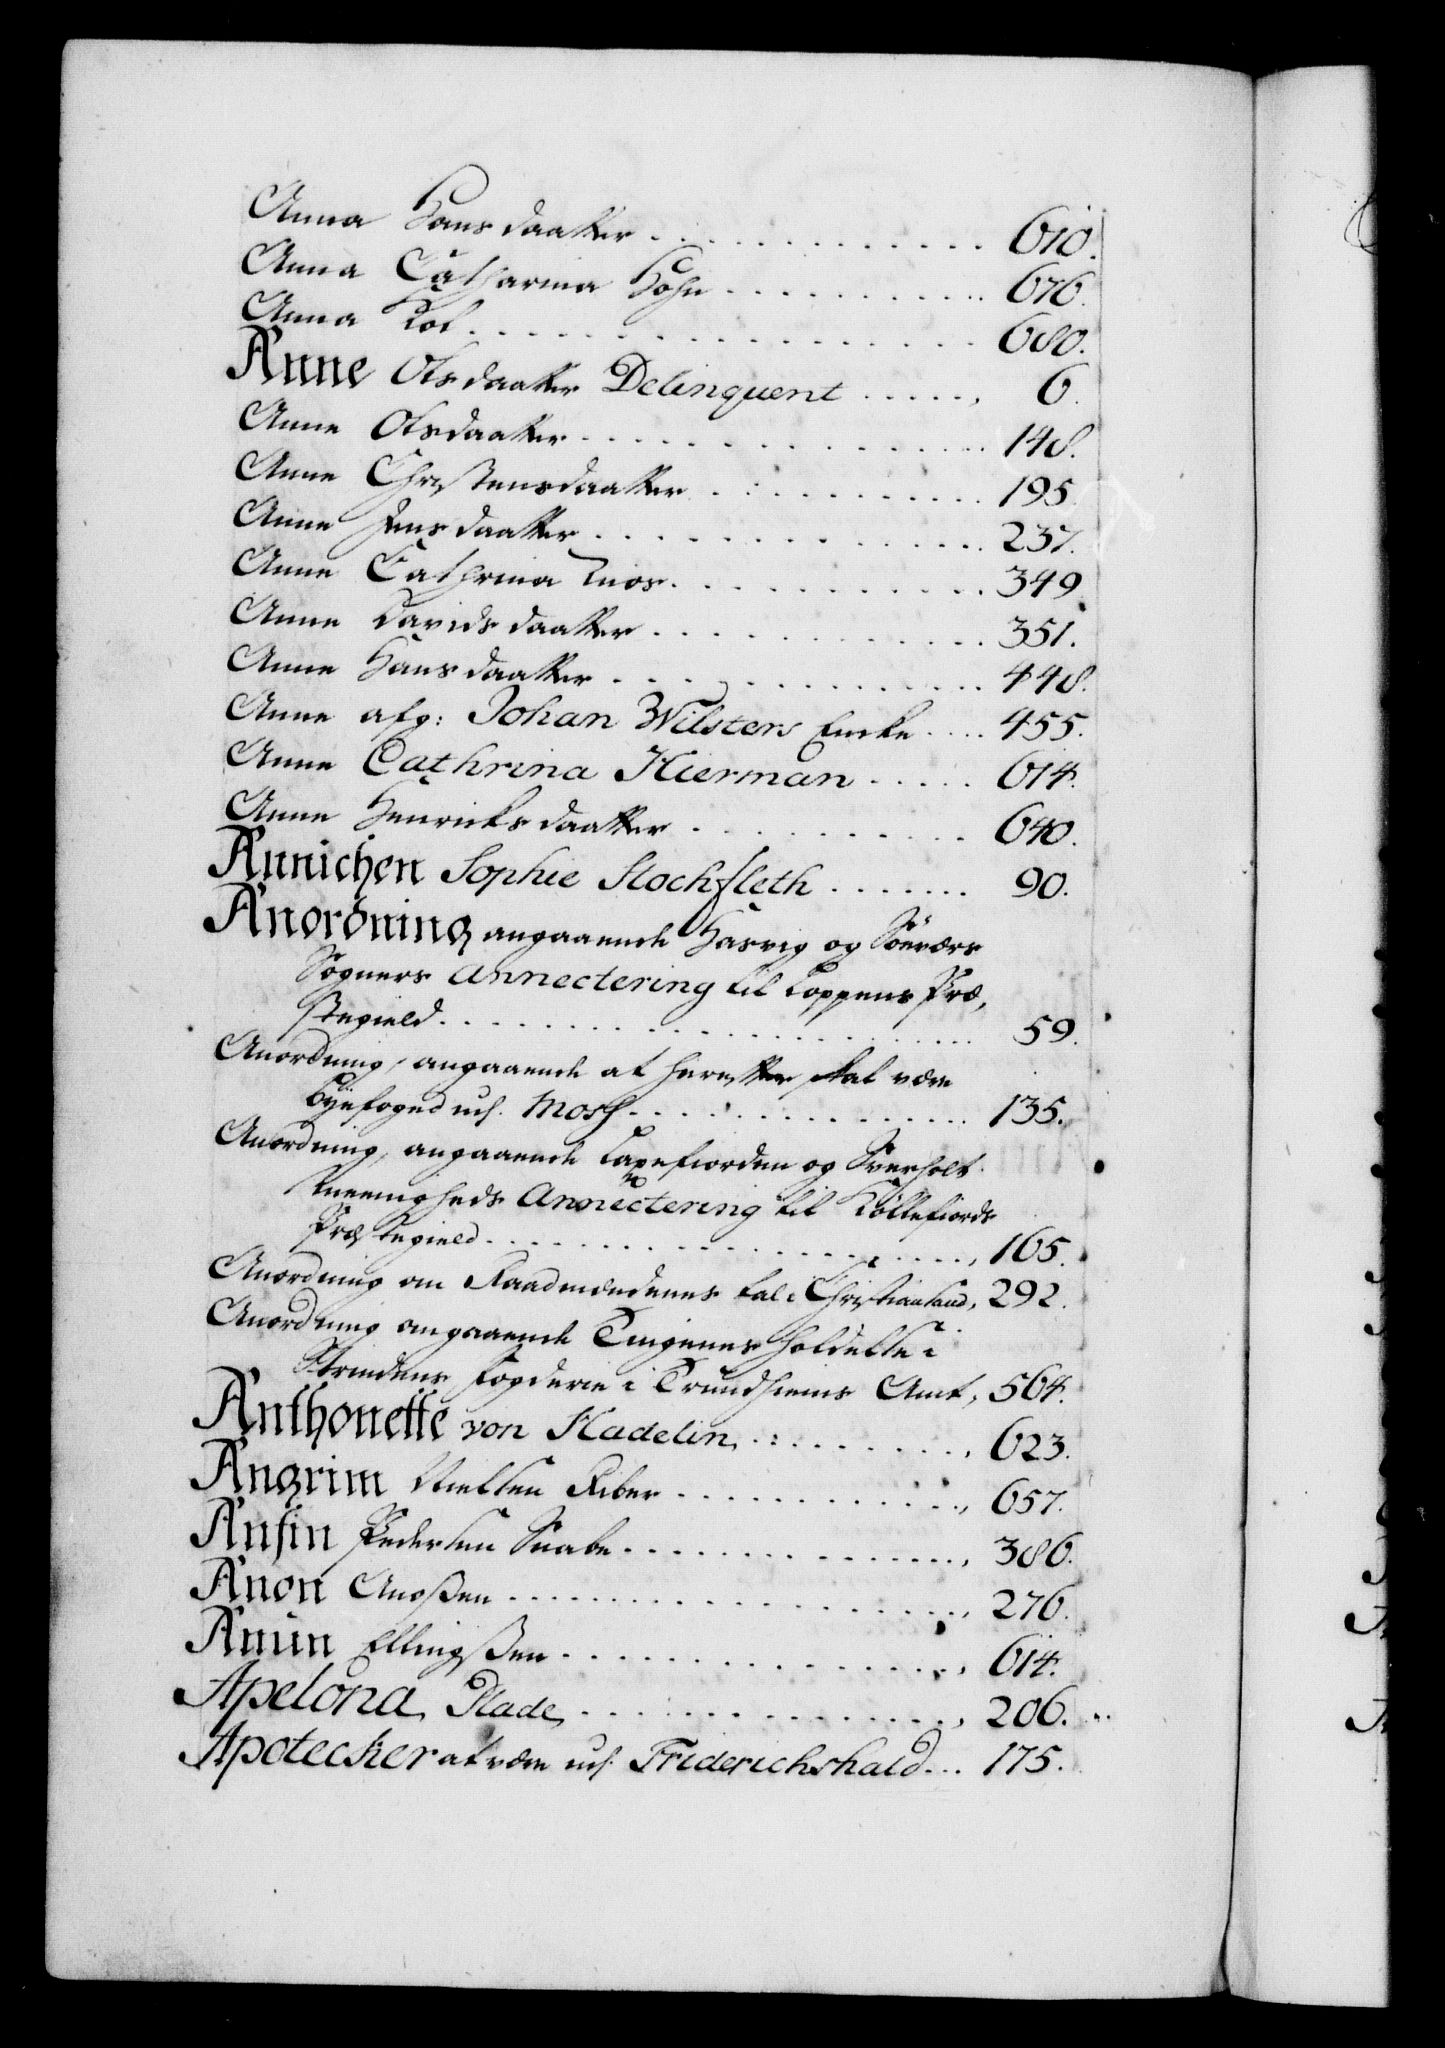 Anna Hansdaatter . . . . . . . . . . . . . 610.
Anna Catharina Hohn . . . . . . . . . . . 676.
Anna Kol . . . . . . . . . . . . . . . . . . 680.
Anne Olsdaatter Delinquent . . . . . 6.
Anne Olsdaatter . . . . . . . . . . . . . . . 148.
Anne Christensdaatter . . . . . . . . . . . 195.
Anne Jensdaatter . . . . . . . . . . . . . . 237.
Anne Cathrina . . . . . . . . . . . . 349
Anne Davidsdaatter . . . . . . . . . . . . 351.
Anne Hansdaatter . . . . . . . . . . . . . . 448.
Anne afg: Johan Wilsters Encke . . . . 455.
Anne Cathrina Hierman . . . . . 614.
Anne Henricksdaatter . . . . . . . . . . . 640.
Annichen Sophie Stochfleth . . . . . . . 90.
Anordning angaaende Hasvig og Söeværs
Sogners Annectering til Loppens Præ-
stegield . . . . . . . . . . . . . . . . . . . . 59.
Anordning, angaaende at herefter skal være
Byefoged udj Moss . . . . . . . . . . . . . 135.
Anordning, angaaende Laxefiorden og Sverholt
Meenigheds Annectering til Kiöllefiords
Præstegield . . . . . . . . . . . . . . . . . . 165.
Anordning om Raadmændenes tal i Christiansand, 292.
Anordning angaaende Tingenes holdelse i
Strindens Fogderie i Trundhiems Amt, 564.
Anthonette von Hadelin . . . . . . . . . . 623.
Angrim Nielsen Riber . . . . . . . . . . . . 657.
Ansin Pedersen Snabe . . . . . . . . . . . . . 386.
Anon Anoßen . . . . . . . . . . . . . . . . . . 276.
Anun Ellingßen . . . . . . . . . . . . . . . . 614.
Apelona Plade . . . . . . . . . . . . . . . . 206.
Apotecker at være udj Friderichshald . . . 175.